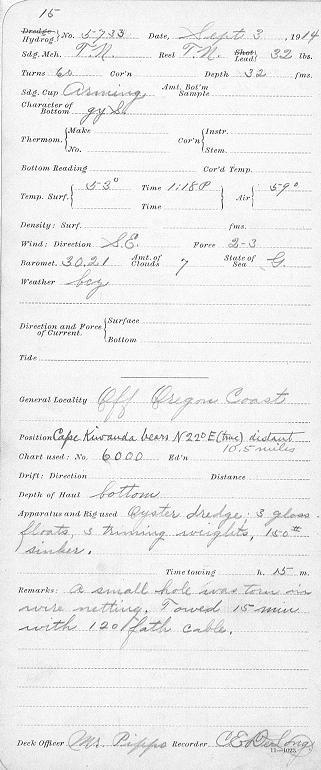 15
Dredge Hydrog } No. 5733 Date, Sept 3, 1914
Sdg. Mch. T.N. Reel T.N. Shot Lead } 32 lbs.
Turns 60 Cor'n Depth 32 fms.
Sdg. Cup Arming Amt. Bot'm Sample
Character of Bottom gy S.
Thermom. { Make No. Cor'n { Instr. Stem.
Bottom Reading Cor'd Temp.
Temp. Surf. { 53° Time 1:18 P Time } Air { 59°
Density: Surf. fms.
Wind: Direction S.E. Force 2-3
Baromet. 30.21 Amt. of Clouds 7 State of Sea G.
Weather bcy
Direction and Force of Current. { Surface Bottom
Tide
General Locality Off Oregon Coast
Position Cape Kiwanda bears N 22° E (true) distant
10.5 miles
Chart used: No. 6000 Ed'n
Drift: Direction Distance
Depth of Haul bottom
Apparatus and Rig used Oyster dredge; 3 glass
floats, 3 trining weights, 150#
sinker.
Time towing h. 15 m.
Remarks: A small hole was torn in
wire netting. Towed 15 min
with 120 fath cable.
Deck Officer Mr. Pippo Recorder C E
11-1023